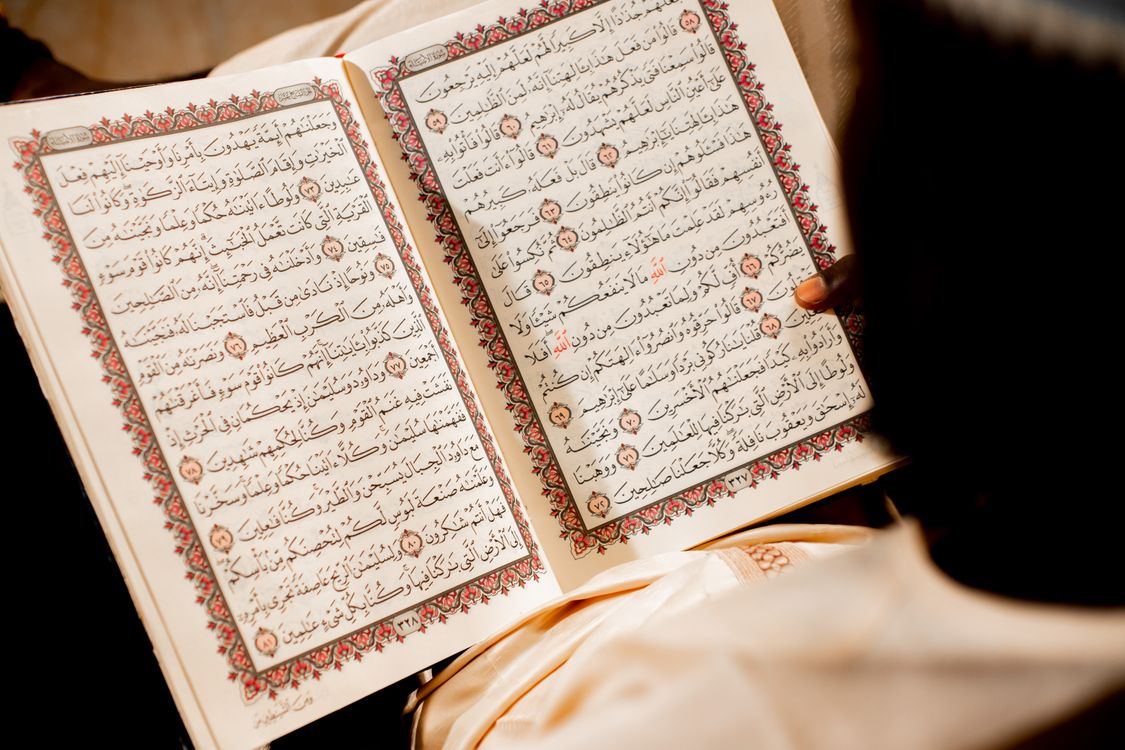 لَّهُمْ لَعَلَّهُمْ إِلَيْهِ يَرْجِعُونَ جُذَٰذًا إِلَّا كَبِيرًا ٥٨
قَالُوا۟ مَن فَعَلَ هَٰذَا بِـَٔالِهَتِنَآ إِنَّهُۥ لَمِنَ ٱلظَّٰلِمِينَ ٥٩
قَالُوا۟ سَمِعْنَا فَتًى يَذْكُرُهُمْ يُقَالُ لَهُۥٓ إِبْرَٰهِيمُ ٦٠ قَالُوا۟ فَأْتُوا۟ بِهِۦ
عَلَىٰٓ أَعْيُنِ ٱلنَّاسِ لَعَلَّهُمْ يَشْهَدُونَ ٦١ قَالُوٓا۟ ءَأَنتَ فَعَلْتَ
هَٰذَا بِـَٔالِهَتِنَا يَٰٓإِبْرَٰهِيمُ ٦٢ قَالَ بَلْ فَعَلَهُۥ كَبِيرُهُمْ
هَٰذَا فَسْـَٔلُوهُمْ إِن كَانُوا۟ يَنطِقُونَ ٦٣ فَرَجَعُوٓا۟ إِلَىٰٓ
أَنفُسِهِمْ فَقَالُوٓا۟ إِنَّكُمْ أَنتُمُ ٱلظَّٰلِمُونَ ٦٤ ثُمَّ نُكِسُوا۟ عَلَىٰ
رُءُوسِهِمْ لَقَدْ عَلِمْتَ مَا هَٰٓؤُلَآءِ يَنطِقُونَ ٦٥ قَالَ
أَفَتَعْبُدُونَ مِن دُونِ ٱللَّهِ مَا لَا يَنفَعُكُمْ شَيْـًٔا وَلَا
يَضُرُّكُمْ ٦٦ أُفٍّ لَّكُمْ وَلِمَا تَعْبُدُونَ مِن دُونِ ٱللَّهِ أَفَلَا
٦٧ قَالُوا۟ حَرِّقُوهُ وَٱنصُرُوٓا۟ ءَالِهَتَكُمْ إِن كُنتُمْ
٦٨ قُلْنَا يَٰنَارُ كُونِى بَرْدًا وَسَلَٰمًا عَلَىٰٓ إِبْرَٰهِيمَ ٦٩
وَأَرَادُوا۟ بِهِۦ كَيْدًا فَجَعَلْنَٰهُمُ ٱلْأَخْسَرِينَ ٧٠ وَنَجَّيْنَٰهُ
وَلُوطًا إِلَى ٱلْأَرْضِ ٱلَّتِى بَٰرَكْنَا فِيهَا لِلْعَٰلَمِينَ ٧١ وَوَهَبْنَا
لَهُۥٓ إِسْحَٰقَ وَيَعْقُوبَ نَافِلَةً وَكُلًّا جَعَلْنَا صَٰلِحِينَ ٧٢
٣٢٧
وَجَعَلْنَٰهُمْ أَئِمَّةً يَهْدُونَ بِأَمْرِنَا وَأَوْحَيْنَآ إِلَيْهِمْ فِعْلَ
ٱلْخَيْرَٰتِ وَإِقَامَ ٱلصَّلَوٰةِ وَإِيتَآءَ ٱلزَّكَوٰةِ وَكَانُوا۟ لَنَا
عَٰبِدِينَ ٧٣ وَلُوطًا ءَاتَيْنَٰهُ حُكْمًا وَعِلْمًا وَنَجَّيْنَٰهُ مِنَ
ٱلْقَرْيَةِ ٱلَّتِى كَانَت تَّعْمَلُ ٱلْخَبَٰٓئِثَ إِنَّهُمْ كَانُوا۟ قَوْمَ سَوْءٍ
فَٰسِقِينَ ٧٤ وَأَدْخَلْنَٰهُ فِى رَحْمَتِنَآ إِنَّهُۥ مِنَ ٱلصَّٰلِحِينَ
٧٥ وَنُوحًا إِذْ نَادَىٰ مِن قَبْلُ فَٱسْتَجَبْنَا لَهُۥ فَنَجَّيْنَٰهُ
وَأَهْلَهُۥ مِنَ ٱلْكَرْبِ ٱلْعَظِيمِ ٧٦ وَنَصَرْنَٰهُ مِنَ ٱلْقَوْمِ
ٱلَّذِينَ كَذَّبُوا۟ بِـَٔايَٰتِنَآ إِنَّهُمْ كَانُوا۟ قَوْمَ سَوْءٍ فَأَغْرَقْنَٰهُمْ
أَجْمَعِينَ ٧٧ وَدَاوُۥدَ وَسُلَيْمَٰنَ إِذْ يَحْكُمَانِ فِى ٱلْحَرْثِ إِذْ
نَفَشَتْ فِيهِ غَنَمُ ٱلْقَوْمِ وَكُنَّا لِحُكْمِهِمْ شَٰهِدِينَ ٧٨
فَفَهَّمْنَٰهَا سُلَيْمَٰنَ وَكُلًّا ءَاتَيْنَا حُكْمًا وَعِلْمًا وَسَخَّرْنَا
مَعَ دَاوُۥدَ ٱلْجِبَالَ يُسَبِّحْنَ وَٱلطَّيْرَ وَكُنَّا فَٰعِلِينَ ٧٩
وَعَلَّمْنَٰهُ صَنْعَةَ لَبُوسٍ لَّكُمْ لِتُحْصِنَكُم مِّنۢ بَأْسِكُمْ
فَهَلْ أَنتُمْ شَٰكِرُونَ ٨٠ وَلِسُلَيْمَٰنَ ٱلرِّيحَ عَاصِفَةً تَجْرِى بِأَمْرِهِۦٓ
إِلَى ٱلْأَرْضِ ٱلَّتِى بَٰرَكْنَا فِيهَا وَكُنَّا بِكُلِّ شَىْءٍ عَٰلِمِينَ ٨١
٣٢٨
وَمِنَ ٱلشَّيَٰطِينِ